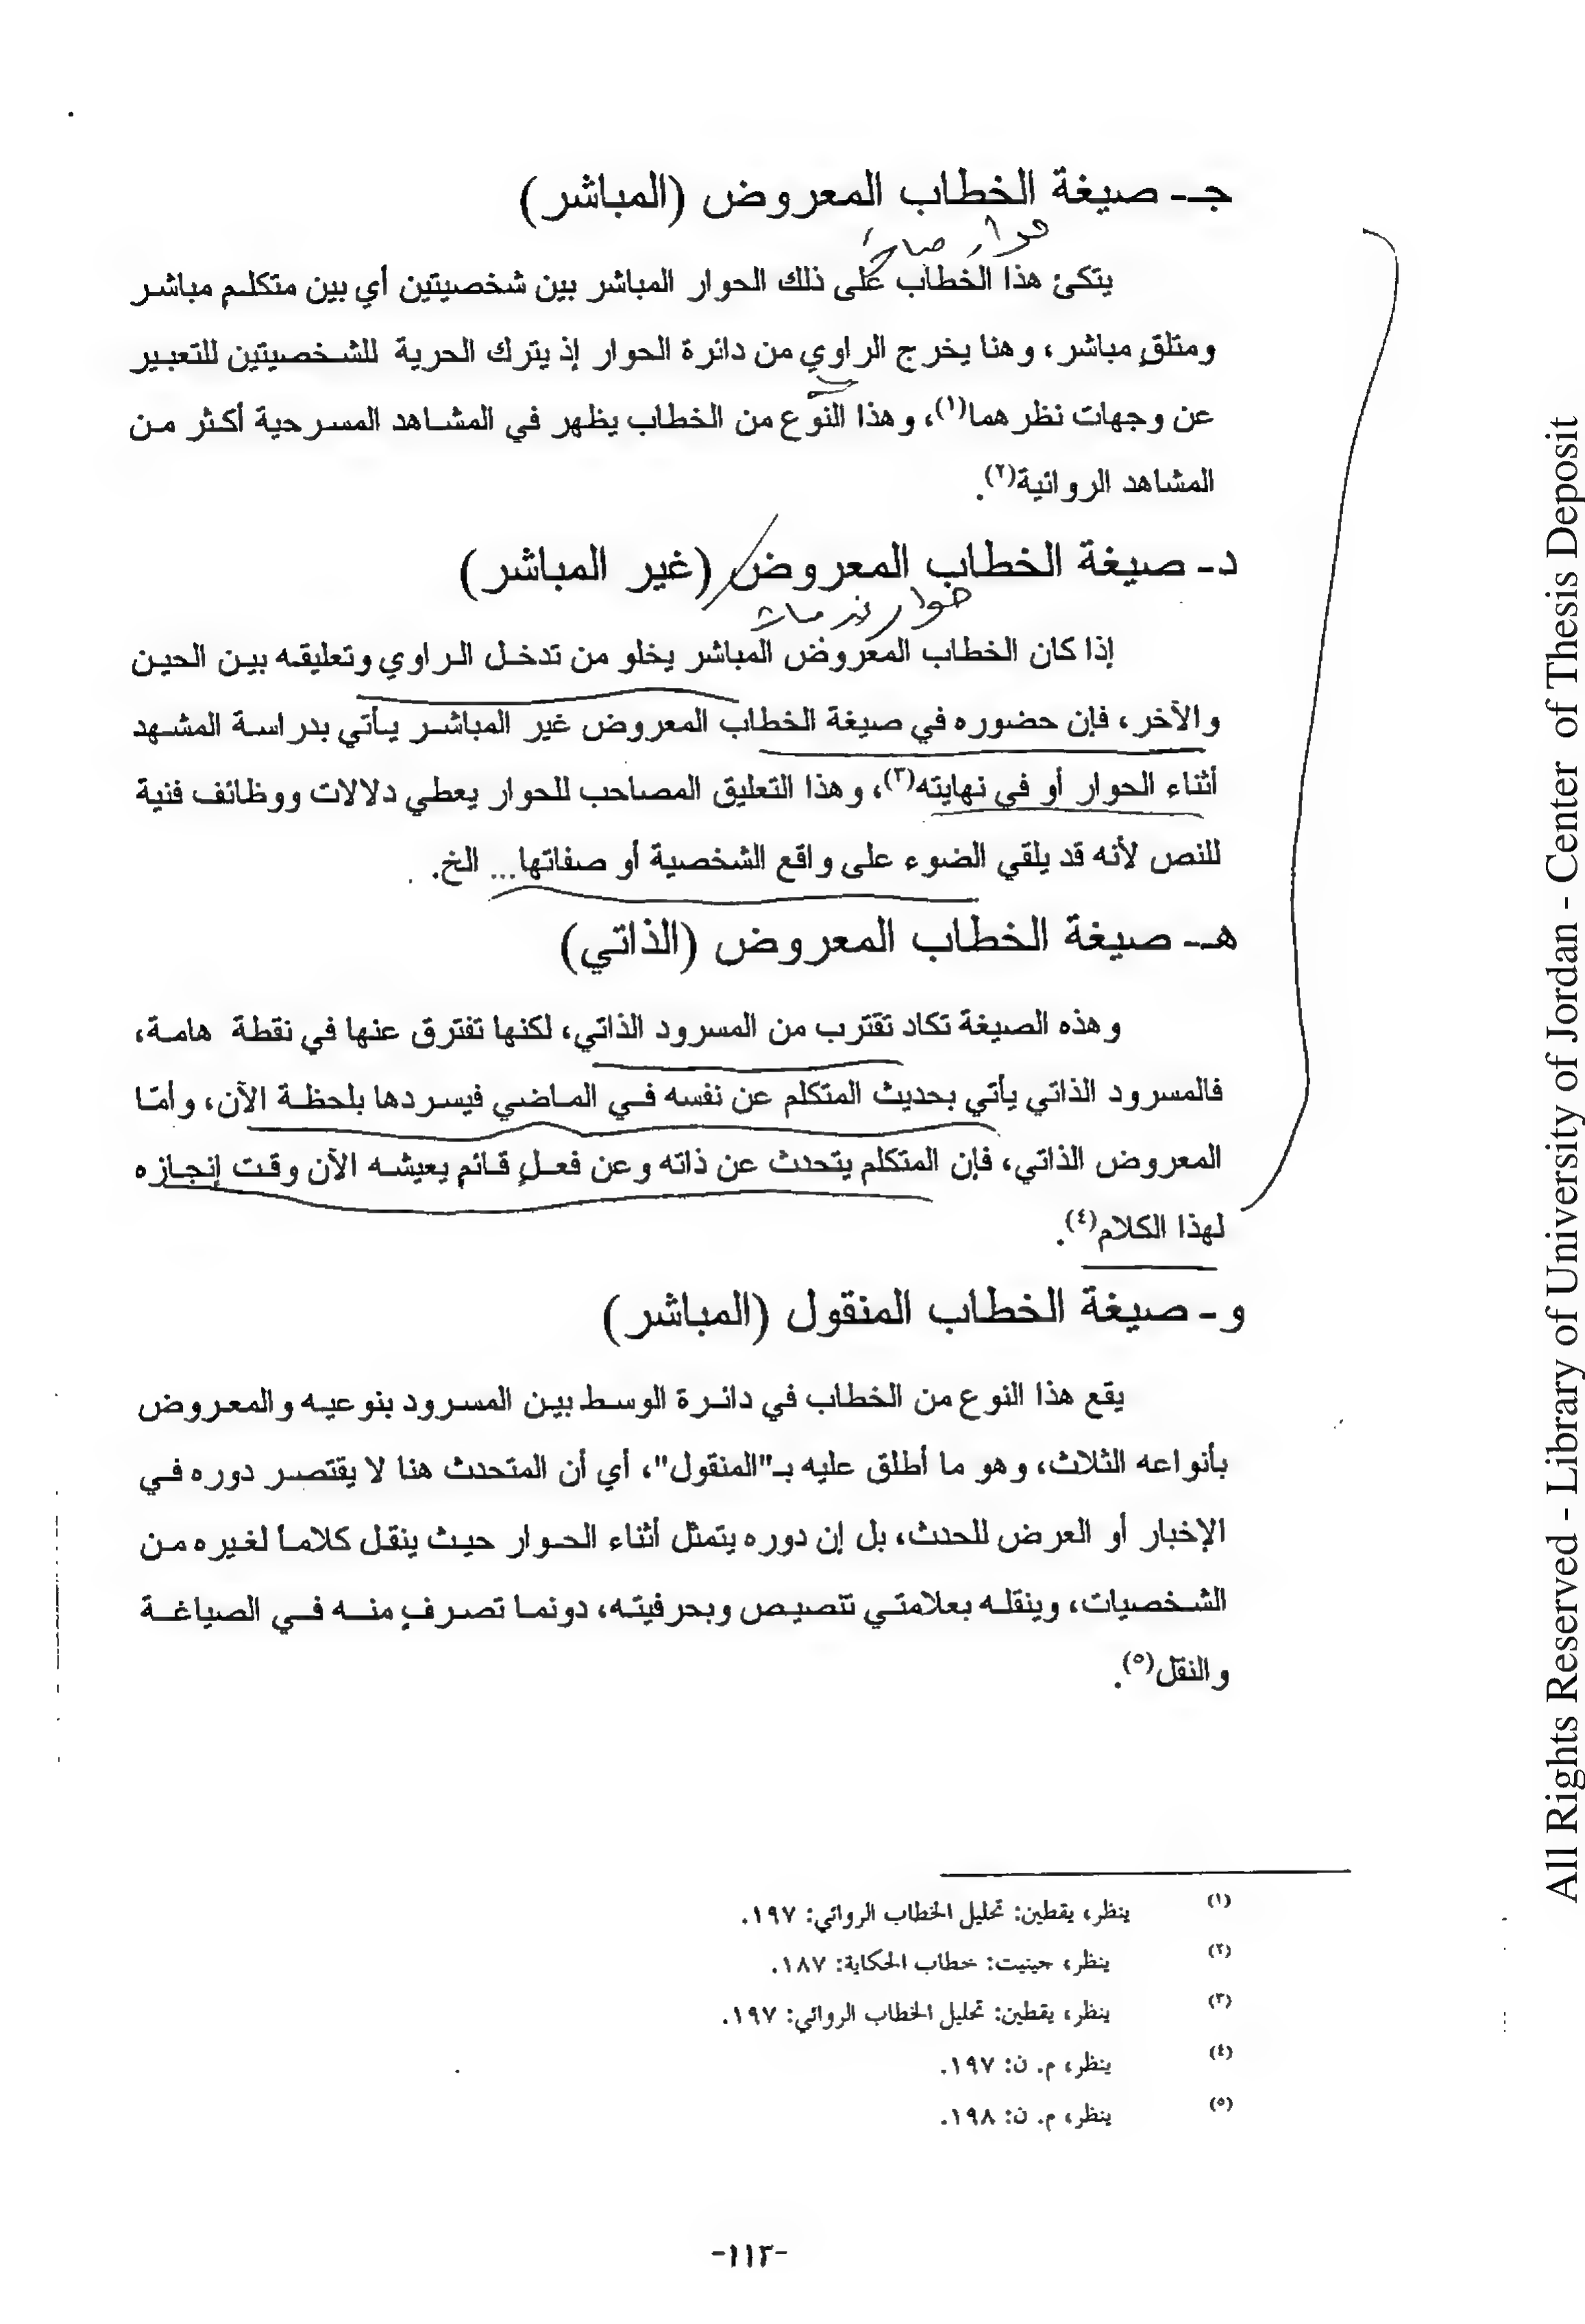 جـ- صيغة الخطاب المعروض (المباشر)
يتكئ هذا الخطاب على ذلك الحوار المباشر بين شخصيتين أي بين متكلم مباشر
ومتلقٍ مباشر، وهنا يخرج الراوي من دائرة الحوار إذ يترك الحرية للشخصيتين للتعبير
عن وجهات نظرهما(١)، وهذا النوع من الخطاب يظهر في المشاهد المسرحية أكثر من
المشاهد الروائية(٢).
د- صيغة الخطاب المعروض (غير المباشر)
حوار غير مباشر
إذا كان الخطاب المعروض المباشر يخلو من تدخل الراوي وتعليقه بين الحين
والآخر، فإن حضوره في صيغة الخطاب المعروض غير المباشر يأتي بدراسة المشهد
أثناء الحوار أو في نهايته(٣)، وهذا التعليق المصاحب للحوار يعطي دلالات ووظائف فنية
للنص لأنه قد يلقي الضوء على واقع الشخصية أو صفاتها... الخ.
هـ- صيغة الخطاب المعروض (الذاتي)
وهذه الصيغة تكاد تقترب من المسرود الذاتي، لكنها تفترق عنها في نقطة هامة،
فالمسرود الذاتي يأتي بحديث المتكلم عن نفسه في الماضي فيسردها بلحظة الآن، وأمّا
المعروض الذاتي، فإن المتكلم يتحدث عن ذاته وعن فعلٍ قائم يعيشه الآن وقت إنجازه
لهذا الكلام(٤).
و- صيغة الخطاب المنقول (المباشر)
يقع هذا النوع من الخطاب في دائرة الوسط بين المسرود بنوعيه والمعروض
بأنواعه الثلاث، وهو ما أطلق عليه بـ"المنقول"، أي أن المتحدث هنا لا يقتصر دوره في
الإخبار أو العرض للحدث، بل إن دوره يتمثل أثناء الحوار حيث ينقل كلاماً لغيره من
الشخصيات، وينقله بعلامتي تنصيص وبحرفيته، دونما تصرفٍ منه في الصياغة
والنقل(٥).
(١) ينظر، يقطين: تحليل الخطاب الروائي: ١٩٧.
(٢) ينظر، جينيت: خطاب الحكاية: ١٨٧.
(٣) ينظر، يقطين: تحليل الخطاب الروائي: ١٩٧.
(٤) ينظر، م. ن: ١٩٧.
(٥) ينظر، م. ن: ١٩٨.
-١١٣-
All Rights Reserved - Library of University of Jordan - Center of Thesis Deposit